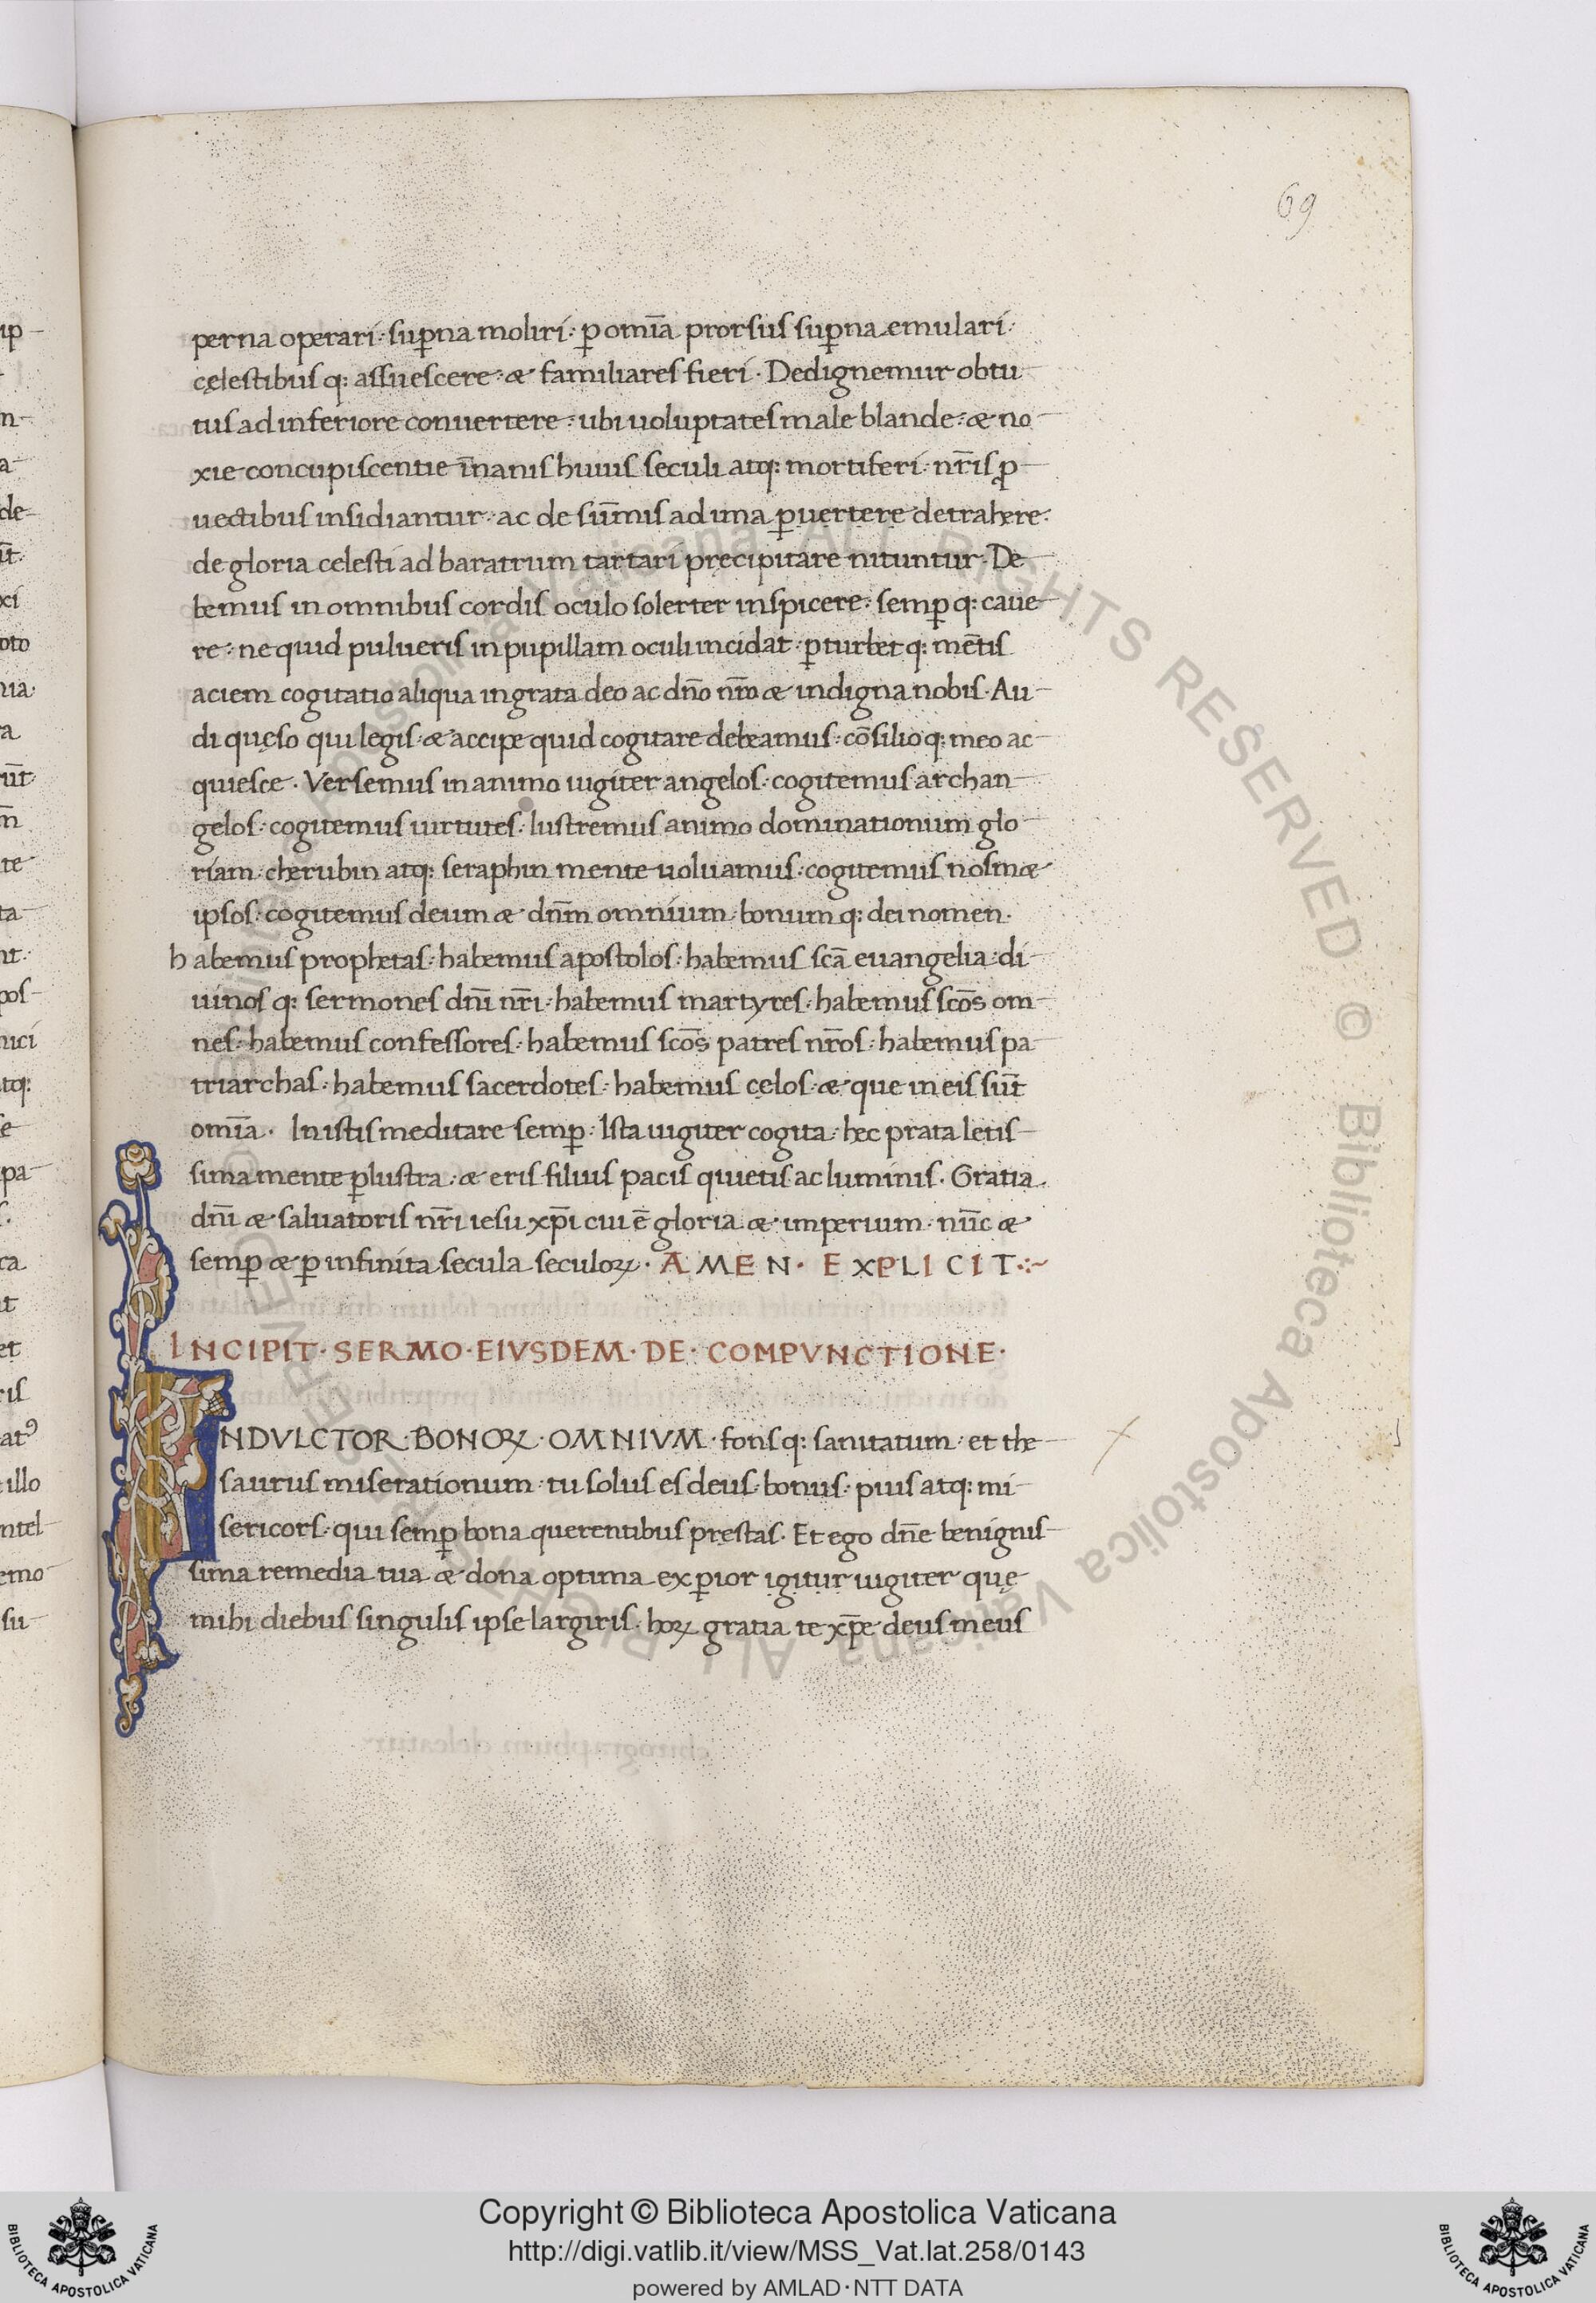 69
perna operari· sup̱na moliri· p̱ om̄ia prorsus sup̱na emulari·
cęlestibus q: assuescere· & familiares fieri· Dedignemur obtu-
tus ad inferiore conuertere· ubi uoluptates male blande· & no-
xie concupiscentie īnanis huius seculi atq: mortiferi· nr̄is ꝓ-
uectibus insidiantur· ac de sūmis ad ima ꝑuertere detrahere·
de gloria celesti ad baratrum tartari pręcipitare nituntur· De-
bemus in omnibus cordis oculo solerter inspicere· semꝑ q: caue-
re· ne quid pulueris in pupillam oculi incidat· ꝑturbet q: mētis
aciem cogitatio aliqua ingrata deo ac dn̄o nr̄o & indigna nobis· Au-
di quęso qui legis· & accipe quid cogitare debeamus· cōsilio q: meo ac-
quiesce· Versemus in animo iugiter angelos· cogitemus archan-
gelos· cogitemus uirtutes· lustremus animo dominationum glo-
riam· cherubin atq: seraphin mente uoluamus· cogitemus nosm&
ipsos· cogitemus deum & dn̄m omnium· bonum q: dei nomen·
habemus prophetas· habemus apostolos· habemus scā euangelia· di-
uinos q: sermones dn̄i nr̄i· habemus martyres· habemus scōs om-
nes· habemus confessores· habemus scōs patres nr̄os· habemus pa-
triarchas· habemus sacerdotes· habemus cęlos· & que in eis sūt
om̄ia· In istis meditare semꝑ· Ista iugiter cogita· hec prata letis-
sima mente ꝑlustra· & eris filius pacis quietis ac luminis· Gratia
dn̄i & saluatoris nr̄i iesu xp̄i cui ē gloria & imperium· nūc &
semꝑ & ꝑ infinita secula seculoꝝ· AMEN· EXPLICIT·:~
INCIPIT· SERMO· EIVSDEM· DE· COMPVNCTIONE·
INDVLCTOR· BONOꝜ· OMNIVM· fons q: sanitatum· et the-
saurus miserationum· tu solus es deus· bonus· pius atq: mi-
sericors· qui semꝑ bona querentibus pręstas· Et ego dn̄e benignis-
sima remedia tua & dona optima exꝑior igitur iugiter quę
mihi diebus singulis ipse largiris· hoꝝ gratia te xp̄e deus meus
Copyright © Biblioteca Apostolica Vaticana
http://digi.vatlib.it/view/MSS_Vat.lat.258/0143
powered by AMLAD·NTT DATA
BIBLIOTECA APOSTOLICA VATICANA
BIBLIOTECA APOSTOLICA VATICANA
Biblioteca Apostolica Vaticana ALL RIGHTS RESERVED ©
Biblioteca Apostolica Vaticana ALL RIGHTS RESERVED ©